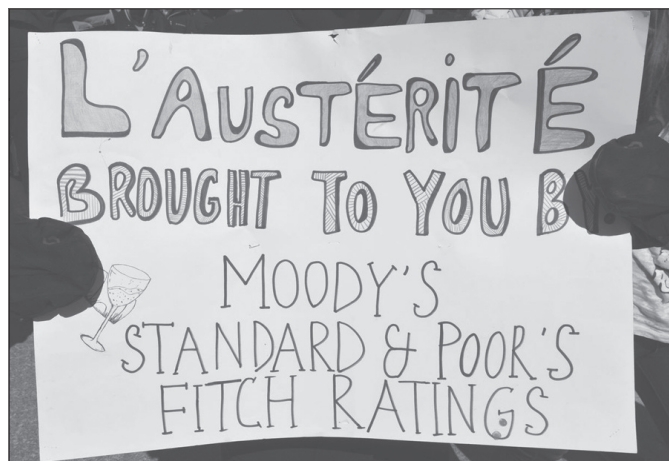 L'AUSTÉRITÉ
BROUGHT TO YOU B
MOODY'S
STANDARD & POOR'S
FITCH RATINGS